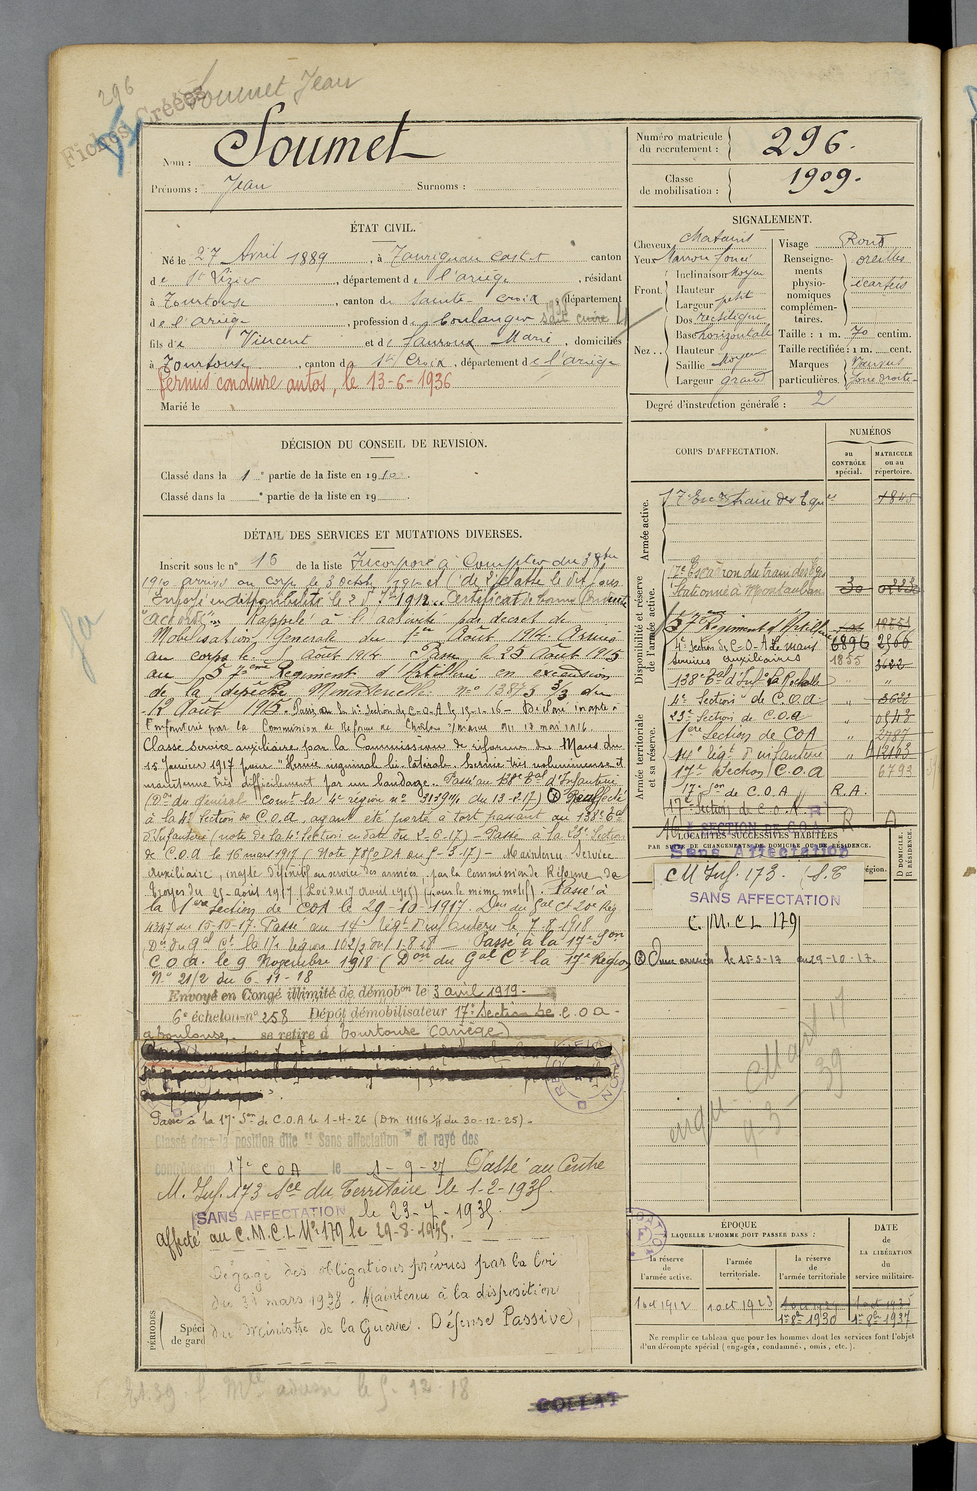 296 Soumet Jean
Fiches Créées
Nom : Soumet
Prénoms : Jean Surnoms :
Numéro matricule du recrutement : 296.
Classe de mobilisation : 1909.
ÉTAT CIVIL.
Né le 27 Avril 1889, à Taurignan cast-t canton
de St Lizier, département de l'ariège, résidant
à Tourtouse, canton de Sainte-croix, département
de l'ariège, profession de boulanger sait cuire
fils de Vincent et de Fauroux Marie, domiciliés
à Tourtouse, canton de Ste Croix, département de l'ariège
Permis conduire autos, le 13-6-1936
Marié le
SIGNALEMENT.
Cheveux chatains
Yeux Marron foncé
Front Inclinaison Moyen
Hauteur
Largeur petit
Nez Dos rectiligne
Base horizontale
Hauteur
Saillie Moyen
Largeur grand
Visage Rond
Renseignements physionomiques complémentaires. oreilles écartées
Taille : 1 m. 70 centim.
Taille rectifiée : 1 m. cent.
Marques particulières. joue droite
Degré d'instruction générale : 2
DÉCISION DU CONSEIL DE REVISION.
Classé dans la 1e partie de la liste en 1910.
Classé dans la e partie de la liste en 19
DÉTAIL DES SERVICES ET MUTATIONS DIVERSES.
Inscrit sous le n° 15 de la liste Incorporé à Compter du 3 8bre
1910 arrivé au corps le 3 octobre 1910 et de 2e classe le dit jour
Envoyé en disponibilité le 25 7bre 1912. Certificat de bonne Conduite
"accordé" Rappelé à l'activité par décret de
Mobilisation Générale du 1er Août 1914. Arrivé
au corps le Août 1914 Passé le 25 Août 1915
au 57ème Régiment d'Artillerie en exécution
de la dépêche Ministérielle n° 13875 3/3 du
12 Août 1915. Passé à la 4e Section de C.O.A le 15-1-16 - Déclaré inapte à
l'infanterie par la Commission de Réforme de Châlons s/marne du 17 mai 1916
Classé service auxiliaire par la Commission de réforme du Mans du
15 janvier 1917 pour "Hernie inguinale bi-latérale. Hernie très volumineuse et
maintenue très difficilement par un bandage. Passé au 138e Ral d'Infanterie
(Don du général Comt la 4e région n° du 13-2-17) Réaffecté
à la 4e Section de C.O.A, ayant été porté à tort passant au 138e Ral
d'Infanterie (note de la 4e Section en date du 2-6-17) - Passé à la 23e Section
de C.O.A le 16 mars 1917 (Note 7850 DA du 5-3-17) - Maintenu Service
Auxiliaire, inapte Définitif au service des armées, par la Commission de Réforme de
Troyes du 25 août 1917 (Loi du 7 août 1915) (pour le même motif). Passé à
la 1ère Section de COA le 29-10-1917. Don du Gal Ct 20e Rég
4347 du 15-10-17. Passé au 14e Régt d'Infanterie le 7.8.1918
Don du Gal Ct la 17e Région 1031/2 du 1.8.18 - Passé à la 17e Son
C.O.A. le 9 Novembre 1918 (Don du Gal Ct la 17e Région
N° 21/2 du 6-11-18
Envoyé en Congé illimité de démobon le 3 avril 1919.
6e échelon n° 258 Dépôt démobilisateur 17e Section de C.O.A -
à Toulouse, se retire à Tourtouse (Ariège)
Passé à la 17e Son de C.O.A le 1-4-26 (DM 11116 1/3 du 30-12-25) -
Classé dans la position dite "Sans affectation" et rayé des
contrôles du 17e COA le 1-9-27 Passé au Centre
M. Inf. 173 Sce du Territoire le 1-2-1935.
SANS AFFECTATION le 23-7-1935.
affecté au C.M.C.L N° 179 le 29-8-1935.
Dégagé des obligations prévues par la loi
du 31 mars 1928. Maintenu à la disposition
du Ministre de la Guerre. Défense Passive,
PÉRIODES
Spéci
de gard
CORPS D'AFFECTATION.
NUMÉROS
au CONTRÔLE spécial.
MATRICULE ou au répertoire.
Armée active.
17e Escon train des Equages 1845
Disponibilité et réserve de l'armée active.
17e Escadron du train des Eqs
Stationné à Montauban 30
57ème Régiment d'Artillerie
4e Section de C-O-A Le Mans 6896 2566
Services auxiliaires 1855 3622
138e Ral d'Infie La Rochelle " "
Armée territoriale et sa réserve.
4e Section de C.O.A " 3622
23e Section de C.O.A "
1ère Section de COA " 2787
14e Régt d'infanterie " 12163
17e Section C.O.A 6793
17e Son de C.O.A R.A.
17e Section de C.O.A. R
R A
LOCALITÉS SUCCESSIVES HABITÉES
PAR SUITE DE CHANGEMENTS DE DOMICILE OU DE RÉSIDENCE.
D DOMICILE. R RÉSIDENCE.
Sans Affectation
CM Inf. 173. (S.T
région.
SANS AFFECTATION
C.M.CL 179
Aux armées le 15-3-17 au 29-10-17.
ÉPOQUE
À LAQUELLE L'HOMME DOIT PASSER DANS :
la réserve de l'armée active.
l'armée territoriale.
la réserve de l'armée territoriale
DATE de LA LIBÉRATION du service militaire.
1 oct 1912
1 oct 1923
1er 8bre 1930
1er 8bre 1937
Ne remplir ce tableau que pour les hommes dont les services font l'objet
d'un décompte spécial (engagés, condamnés, omis, etc.).
COLLAT